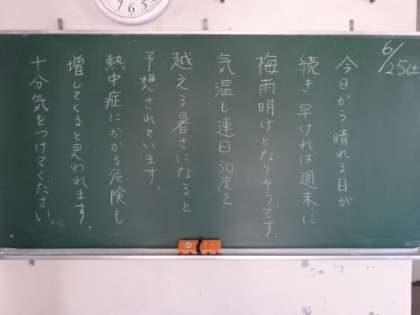 6/25㈯
今日から晴れる日が
続き早ければ週末に
梅雨明けとなりそうです。
気温も連日30度を
越える暑さになると
予想されています。
熱中症にかかる危険も
増してくると思われます。
十分気をつけてください。